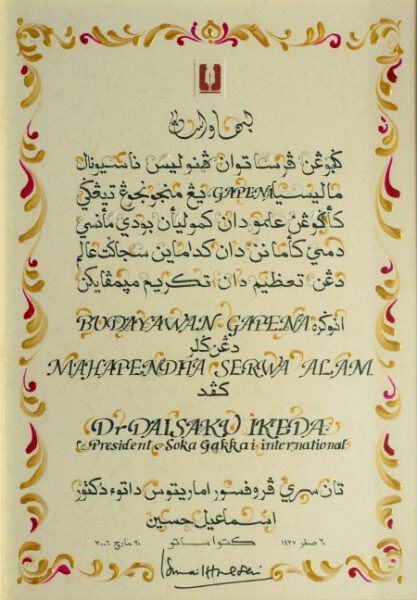 بهاواسڽ
ݢابوڠن ڤرساتوان ڤنوليس ناسيونال
مليسيا GAPENA يڠ منجونجوڠ تيڠݢي
كأݢوڠن علمو دان كموليان بودي مأنسي
دمي كأمانن دان كداماين سجاݢت عالم
دڠن تعظيم دان تكريم مڽمڤايكن
انوݢره BUDAYAWAN GAPENA
دڠن ݢلر
MAHAPENDITA SERWA ALAM
كڤد
Dr DAISAKU IKEDA
President Soka Gakkai International
تان سري ڤروفسور اماريتوس داتوء دكتور
اسماعيل حسين
٢٠ صفر ١٤٢٧ كتوا ساتو ٢٠ مارچ ٢٠٠٦